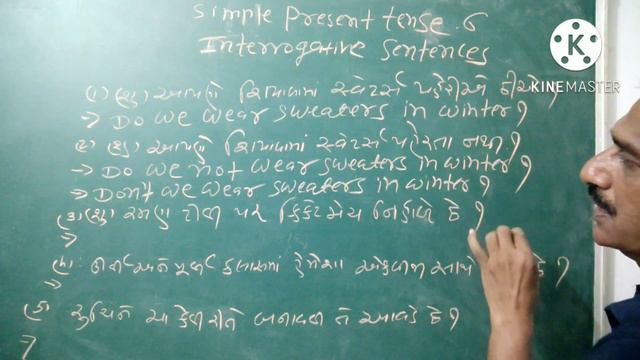 Simple Present tense. 6
Interrogative Sentences
KINEMASTER
(૧) (શું) આપણે શિયાળામાં સ્વેટર્સ પહેરીએ છીએ?
→ Do we wear sweaters in winter?
(૨) (શું) આપણે શિયાળામાં સ્વેટર્સ પહેરતા નથી?
→ Do we not wear sweaters in winter?
→ Don't we wear sweaters in winter?
(૩) (શું) રમણ ટીવી પર ક્રિકેટમેચ નિહાળે છે?
→
અને કલાસમાં હંમેશા
→
આ કેવી રીતે બનાવવી તે આવડે છે?
→